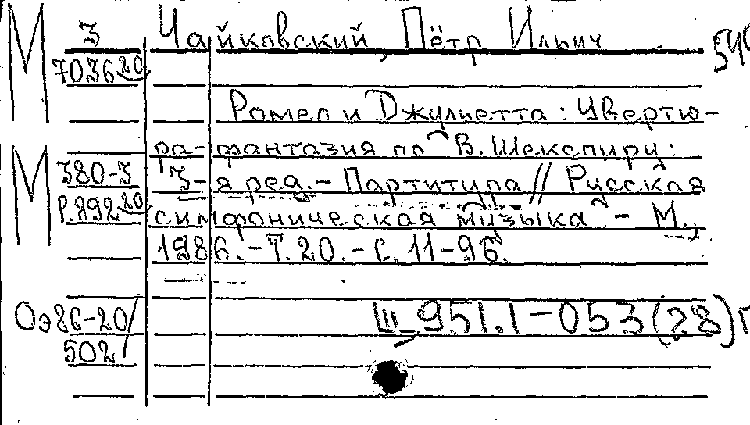 М З Чайковский, Пётр Ильич
703620
Ромео и Джульетта: Увертю-
ра-фантазия по В. Шекспиру:
М 380-3 3-я ред. - Партитура // Русская
Р.892 20 симфоническая музыка - М.,
1986. - Т. 20. - С. 11-96.
Оэ86-20/ Ш951.1-053(28)
502